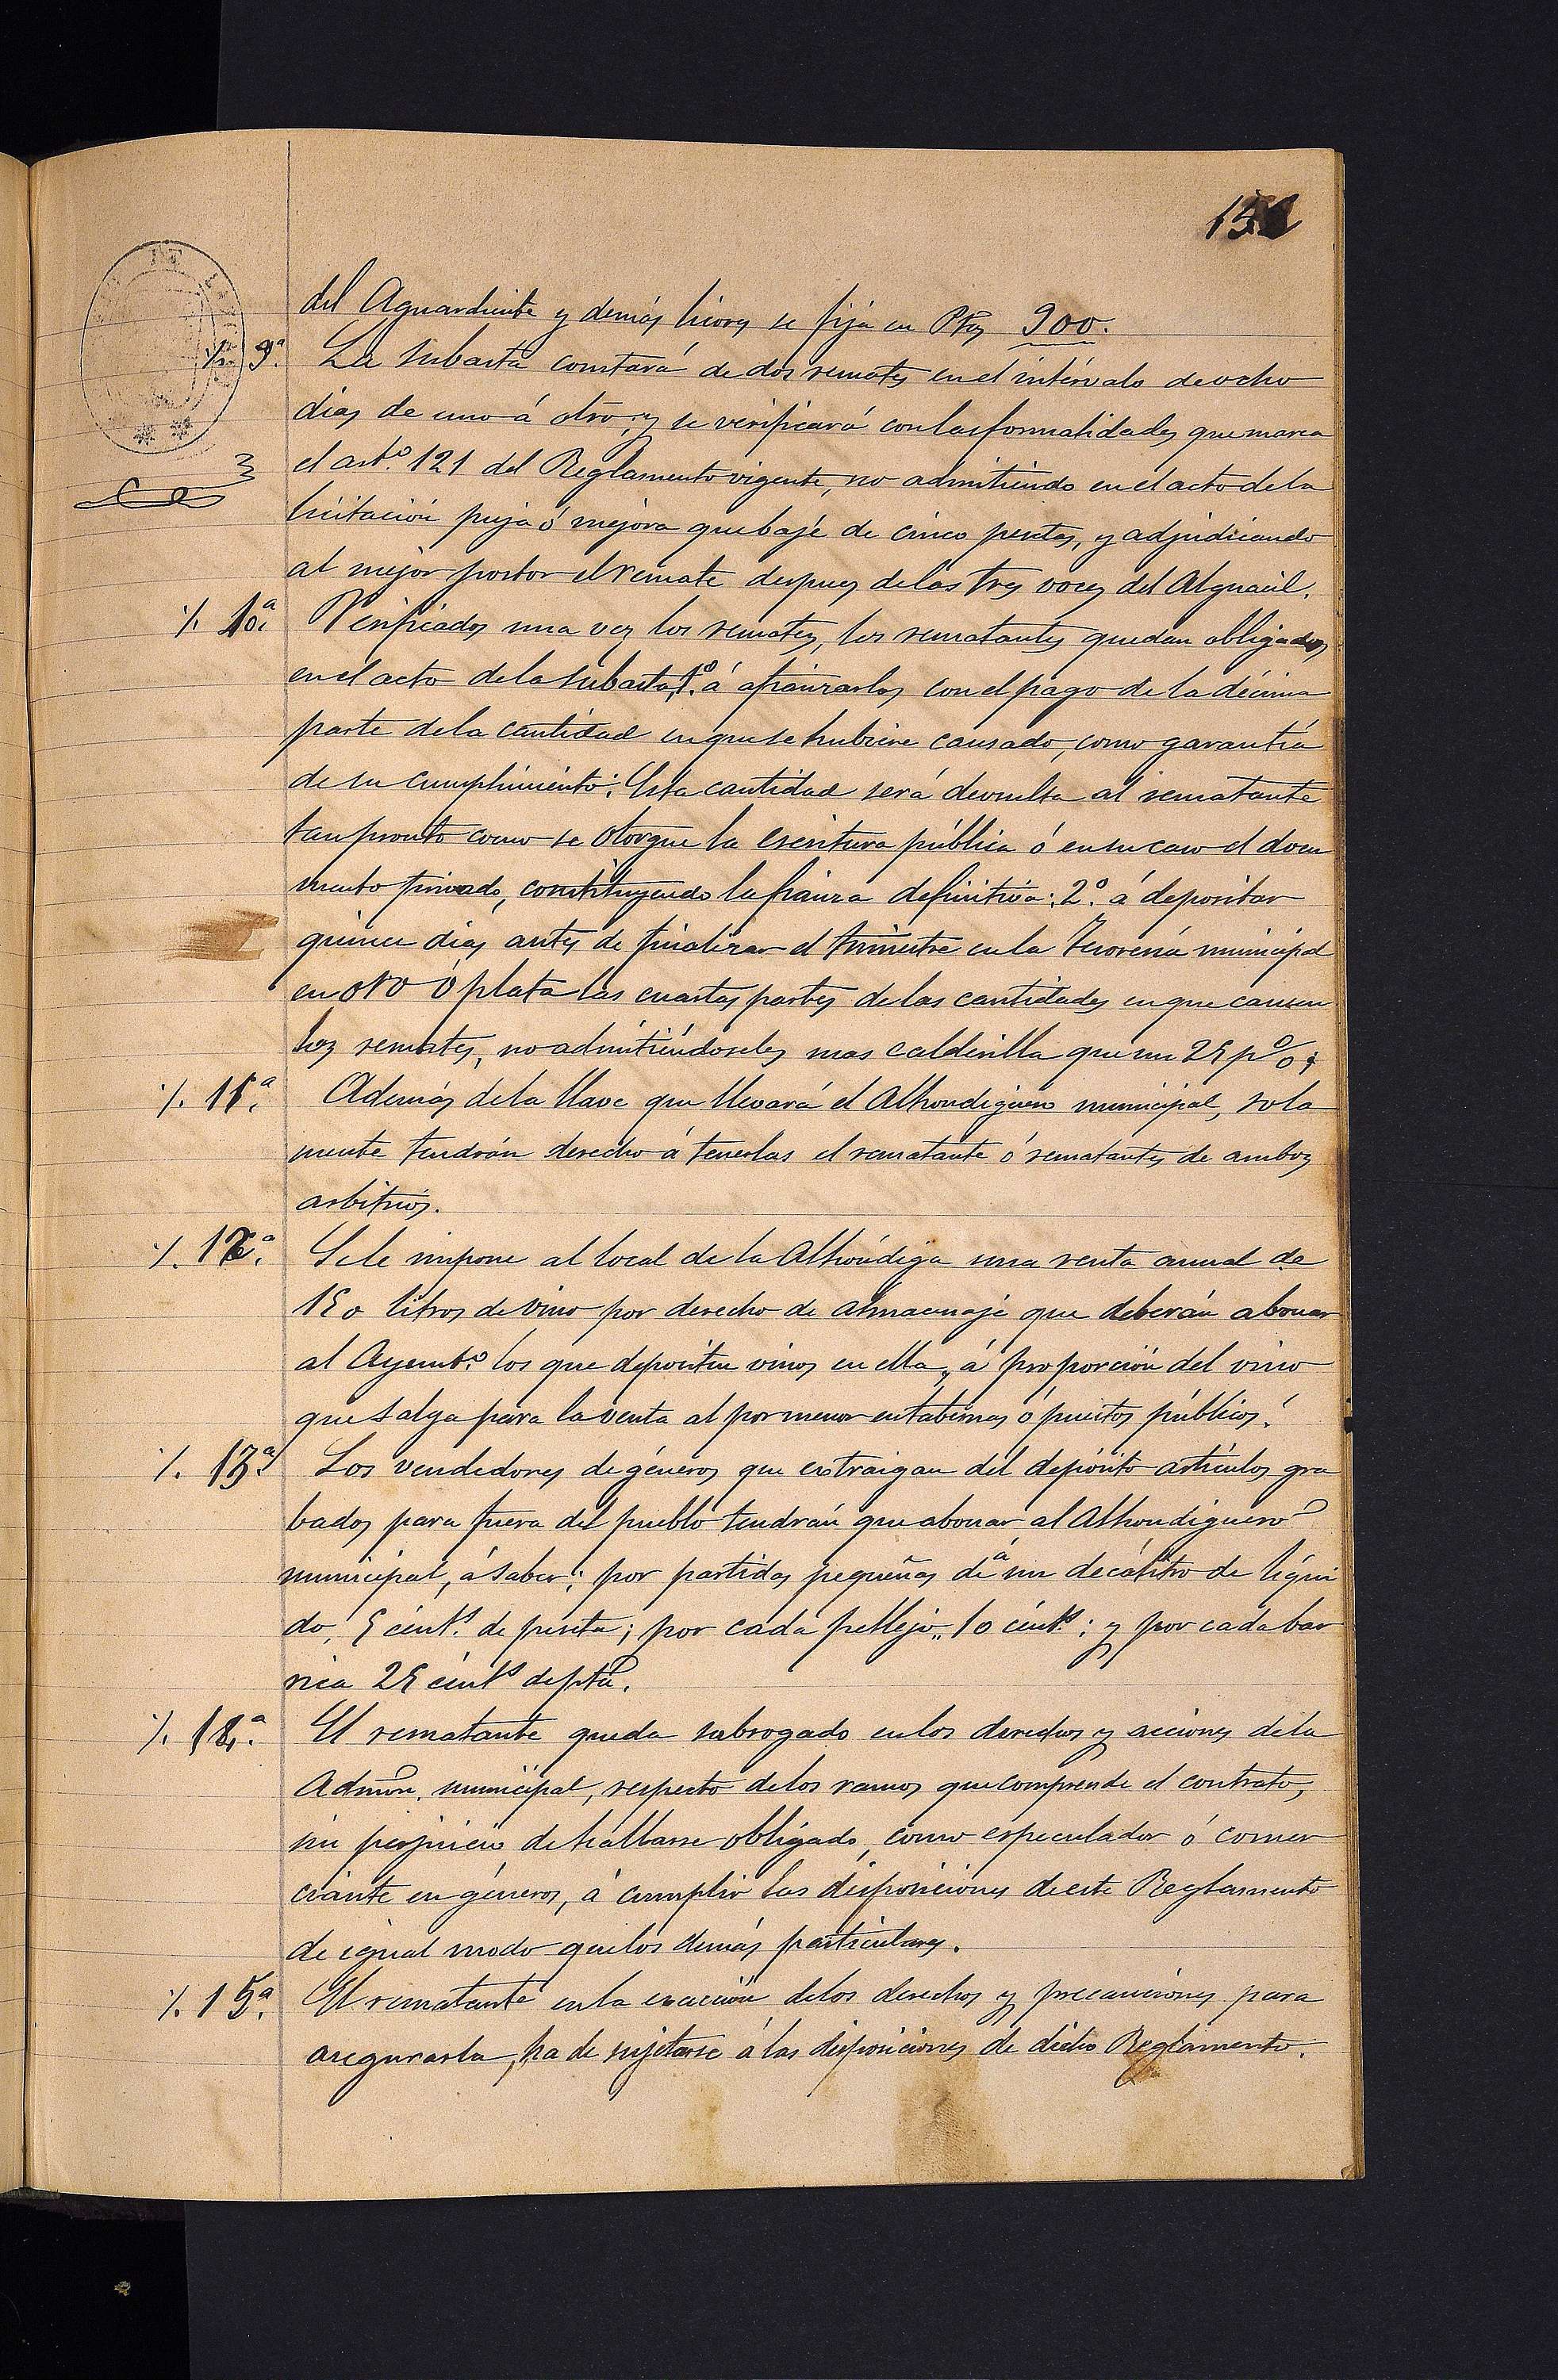 del Aguardiente y demás licores se fija en Ptas 900.
·/. 9ª. La subasta constará de dos remates en el intérvalo de ocho
dias de uno á otro, y se verificará con las formalidades que marca
el artº. 121 del Reglamento vigente, no admitiendo en el acto de la
licitación puja ó mejora que baje de cinco pesetas, y adjudicando
al mejor postor el remate despues de las tres voces del Alguacil.
·/. 10ª. Verificados una vez los remates, los rematantes quedan obligados
en el acto de la subasta, 1º. á afianzarlos con el pago de la décima
parte de la cantidad en que se hubiere causado, como garantía
de su cumplimiento: Esta cantidad será devuelta al rematante
tan pronto como se otorgue la escritura pública ó en su caso el docu
mento privado, constituyendo la fianza definitiva: 2º. á depositar
quince dias antes de finalizar el trimestre en la Tesorería municipal
en oro ó plata las cuartas partes de las cantidades en que causen
los remates, no admitiéndoseles mas calderilla que un 25 pº/o.
·/. 11ª. Además de la llave que llevará el Alhondiguero municipal, sola
mente tendrán derecho á tenerlas el rematante ó rematantes de ambos
arbitrios.
·/. 12ª. Se le impone al local de la Alhóndiga una renta anual de
150 litros de vino por derecho de almacenaje que deberán abonar
al Ayuntº. los que depositen vinos en ella, á proporción del vino
que salga para la venta al por menor en tabernas ó puestos públicos.
·/. 13ª. Los vendedores de géneros que extraigan del depósito artículos gra
bados para fuera del pueblo tendrán que abonar al Alhondiguero
municipal, á saber: por partidas pequeñas de á un decálitro de líqui
do, 5 cénts. de peseta; por cada pellejo,, 10 cénts.; y por cada bar
rica 25 cénts de pta.
·/. 14ª. El rematante queda subrogado en los derechos y acciones de la
Admón. municipal, respecto de los ramos que comprende el contrato,
sin perjuicio de hallarse obligado, como especulador ó comer
ciante en géneros, á cumplir las disposiciones de este Reglamento
de igual modo que los demás particulares.
·/. 15ª. El rematante en la exacción de los derechos y precauciones para
asegurarla, ha de sujetarse á las disposiciones de dicho Reglamento.